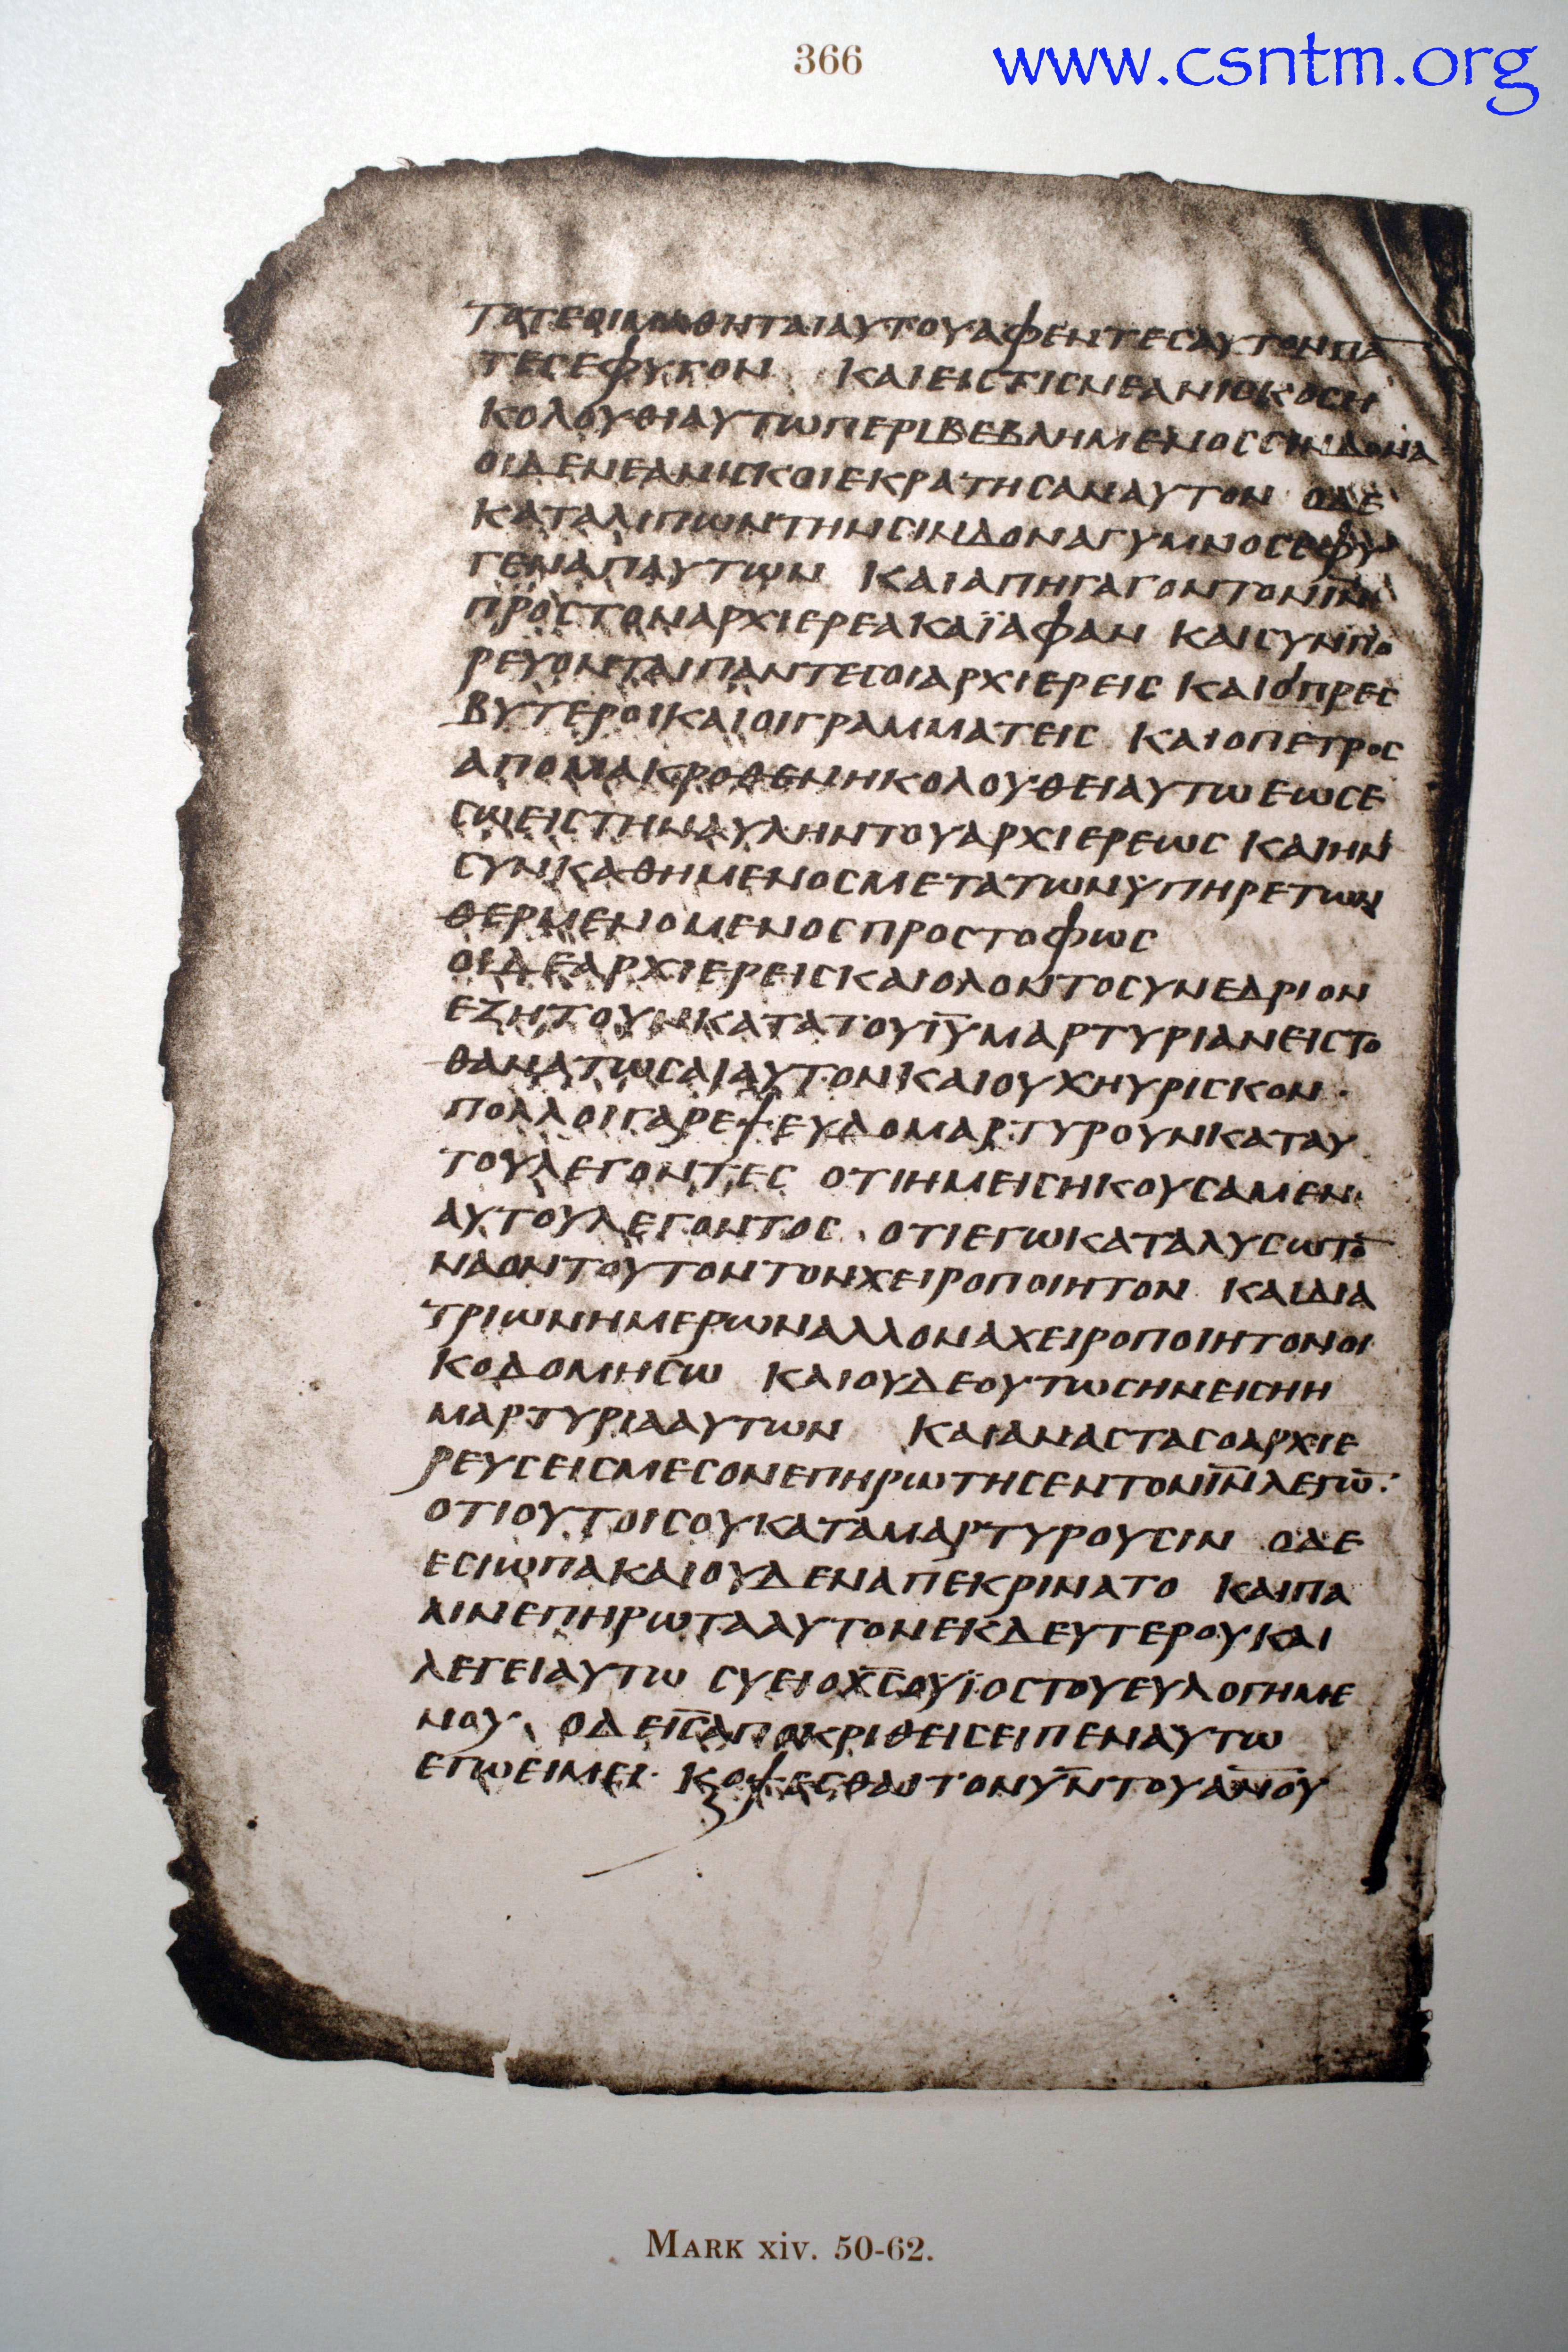 366
www.csntm.org
ΤΟΤΕΟΙΜΑΘΗΤΑΙΑΥΤΟΥΑΦΕΝΤΕϹΑΥΤΟΝΠΑ̅
ΤΕϹΕΦΥΓΟΝ ΚΑΙΕΙϹΤΙϹΝΕΑΝΙϹΚΟϹΗ
ΚΟΛΟΥΘΙΑΥΤΩΠΕΡΙΒΕΒΛΗΜΕΝΟϹϹΙΝΔΟΝΑ
ΟΙΔΕΝΕΑΝΙϹΚΟΙΕΚΡΑΤΗϹΑΝΑΥΤΟΝ ΟΔΕ
ΚΑΤΑΛΙΠΩΝΤΗΝϹΙΝΔΟΝΑΓΥΜΝΟϹΕΦΥ
ΓΕΝΑΠΑΥΤΩΝ ΚΑΙΑΠΗΓΑΓΟΝΤΟΝΙ̅Ν̅
ΠΡΟϹΤΟΝΑΡΧΙΕΡΕΑΚΑΪΑΦΑΝ ΚΑΙϹΥΝΠΟ
ΡΕΥΟΝΤΑΙΠΑΝΤΕϹΟΙΑΡΧΙΕΡΕΙϹ ΚΑΙΟΙΠΡΕϹ
ΒΥΤΕΡΟΙΚΑΙΟΙΓΡΑΜΜΑΤΕΙϹ ΚΑΙΟΠΕΤΡΟϹ
ΑΠΟΜΑΚΡΟΘΕΝΗΚΟΛΟΥΘΕΙΑΥΤΩΕΩϹΕ
ϹΩΕΙϹΤΗΝΑΥΛΗΝΤΟΥΑΡΧΙΕΡΕΩϹ ΚΑΙΗΝ
ϹΥΝΚΑΘΗΜΕΝΟϹΜΕΤΑΤΩΝΥΠΗΡΕΤΩΝ
ΘΕΡΜΕΝΟΜΕΝΟϹΠΡΟϹΤΟΦΩϹ
ΟΙΔΕΑΡΧΙΕΡΕΙϹΚΑΙΟΛΟΝΤΟϹΥΝΕΔΡΙΟΝ
ΕΖΗΤΟΥΝΚΑΤΑΤΟΥΙ̅Υ̅ΜΑΡΤΥΡΙΑΝΕΙϹΤΟ
ΘΑΝΑΤΩϹΑΙΑΥΤΟΝΚΑΙΟΥΧΗΥΡΙϹΚΟΝ·
ΠΟΛΛΟΙΓΑΡΕΨΕΥΔΟΜΑΡΤΥΡΟΥΝΚΑΤΑΥ
ΤΟΥΛΕΓΟΝΤΕϹ ΟΤΙΗΜΕΙϹΗΚΟΥϹΑΜΕΝ
ΑΥΤΟΥΛΕΓΟΝΤΟϹ ΟΤΙΕΓΩΚΑΤΑΛΥϹΩΤΟ̅
ΝΑΟΝΤΟΥΤΟΝΤΟΝΧΕΙΡΟΠΟΙΗΤΟΝ ΚΑΙΔΙΑ
ΤΡΙΩΝΗΜΕΡΩΝΑΛΛΟΝΑΧΕΙΡΟΠΟΙΗΤΟΝΟΙ
ΚΟΔΟΜΗϹΩ ΚΑΙΟΥΔΕΟΥΤΩϹΗΝΕΙϹΗΗ
ΜΑΡΤΥΡΙΑΑΥΤΩΝ ΚΑΙΑΝΑϹΤΑϹΟΑΡΧΙΕ
ΡΕΥϹΕΙϹΜΕϹΟΝΕΠΗΡΩΤΗϹΕΝΤΟΝΙ̅Ν̅ΛΕΓΩ̅·
ΟΤΙΟΥΤΟΙϹΟΥΚΑΤΑΜΑΡΤΥΡΟΥϹΙΝ ΟΔΕ
ΕϹΙΩΠΑΚΑΙΟΥΔΕΝΑΠΕΚΡΙΝΑΤΟ ΚΑΙΠΑ
ΛΙΝΕΠΗΡΩΤΑΑΥΤΟΝΕΚΔΕΥΤΕΡΟΥΚΑΙ
ΛΕΓΕΙΑΥΤΩ ϹΥΕΙΟΧ̅Ϲ̅ΟΥΪΟϹΤΟΥΕΥΛΟΓΗΜΕ
ΝΟΥ ΟΔΕΙ̅Ϲ̅ΑΠΟΚΡΙΘΕΙϹΕΙΠΕΝΑΥΤΩ
ΕΓΩΕΙΜΕΙ· ΚΟΨΕϹΘΑΙΤΟΝΥ̅Ν̅ΤΟΥΑ̅Ν̅Ο̅Υ̅
MARK xiv. 50-62.